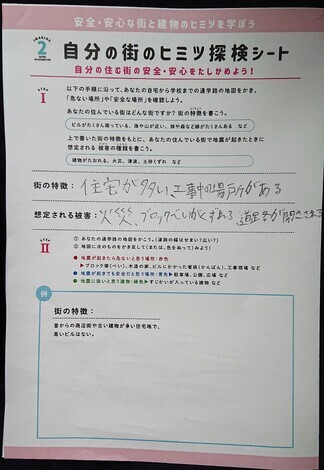 安全・安心な街と建物のヒミツを学ぼう
2 自分の街のヒミツ探検シート
自分の住む街の安全・安心をたしかめよう！
STEP I
以下の手順に沿って、あなたの自宅から学校までの通学路の地図をかき、
「危ない場所」や「安全な場所」を確認しよう。
あなたの住んでいる街はどんな街ですか？ 街の特徴を書こう。
ビルがたくさん建っている、海や山が近い、畑や森など緑がたくさんある など
上で書いた街の特徴をもとに、あなたの住んでいる街で地震が起きたときに
想定される被害の種類を書こう。
建物がたおれる、火災、津波、土砂くずれ など
街の特徴：住宅が多い、工事中の場所がある
想定される被害：火災、ブロックべいがくずれる、道路が
STEP II
① あなたの通学路の地図をかこう。（道路の幅はせまい？広い？）
② 地図に次のものをかき足して（または、色をぬって）みよう！
● 地震が起きたら危ないと思う場所：赤色
▶ブロック塀（べい）、木造の家、ビルにかかった看板（かんばん）、工事現場 など
● 地震が起きても安全だと思う場所：青色▶駐車場、公園、広場 など
● 地震に強いと思う建物：緑色▶すじかいが入っている建物 など
例
街の特徴：
昔からの商店街や古い建物が多い住宅地で、
高いビルはない。